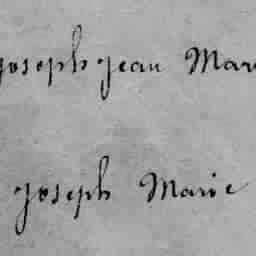 Joseph Jean Mar
Joseph Marie